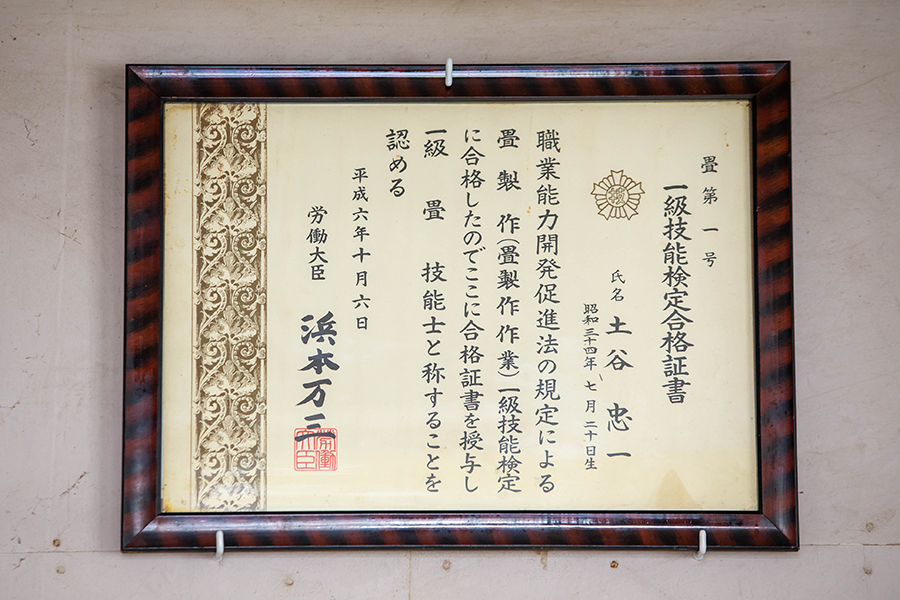 畳第一号
一級技能検定合格証書
氏名 土谷忠一
昭和三十四年七月二十日生
職業能力開発促進法の規定による
畳製作(畳製作作業)一級技能検定
に合格したのでここに合格証書を授与し
一級 畳 技能士と称することを
認める
平成六年十月六日
労働大臣 浜本万三
労働大臣